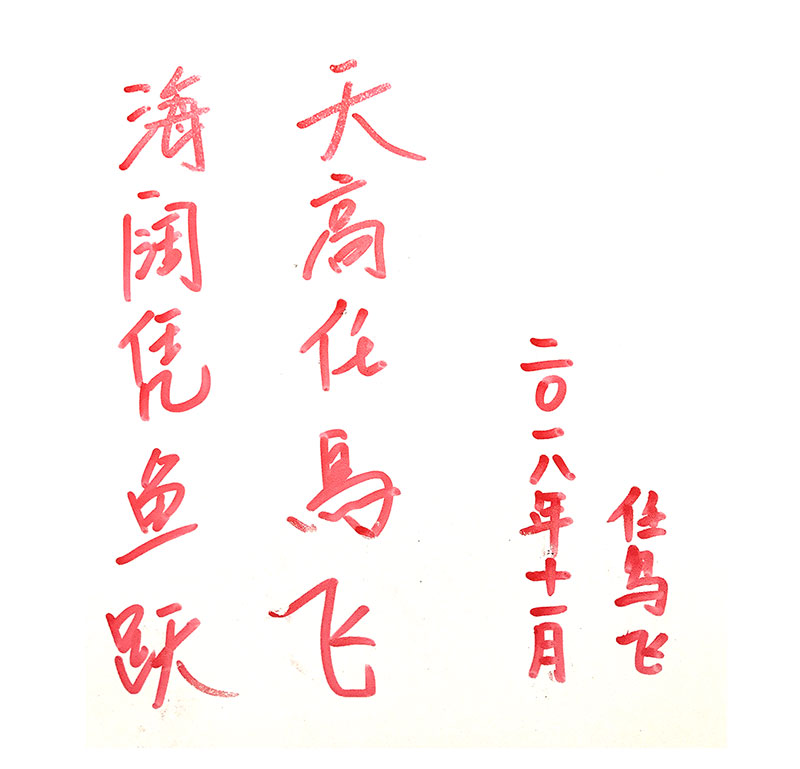 海阔凭鱼跃
天高任鳥飞
二〇一八年十一月
任鸟飞